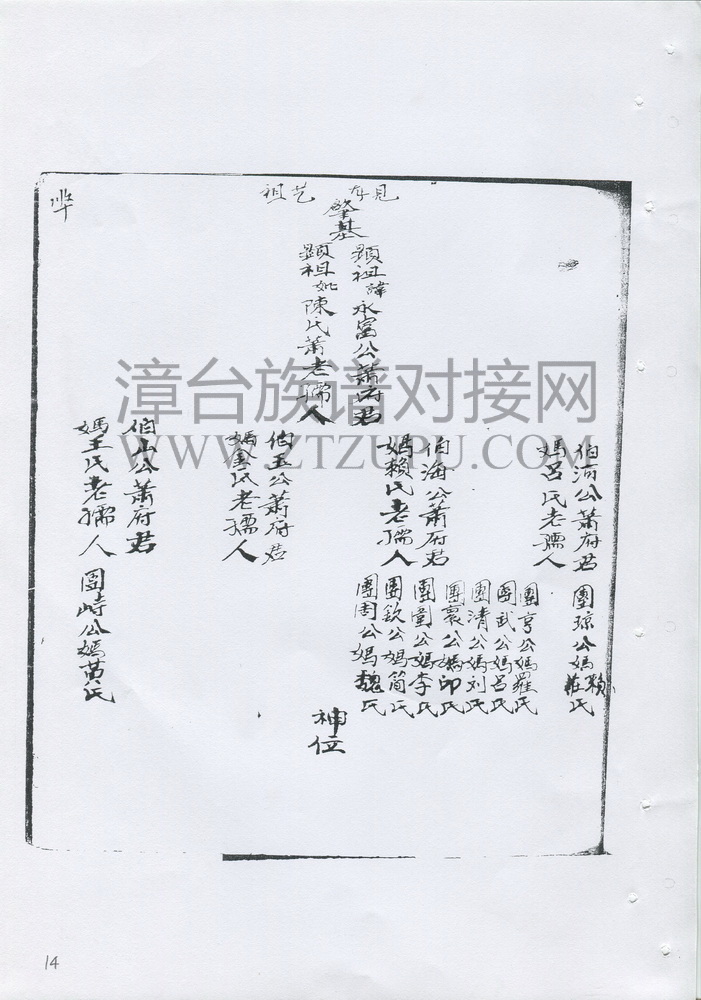 祖艺
肇基
顯祖諱永富公蕭府君
顯祖妣陳氏蕭老孺人
伯河公蕭府君
媽呂氏老孺人
團琼公媽賴氏
莊
伯海公蕭府君
媽賴氏老孺人
團亨公媽羅氏
團武公媽呂氏
團清公媽刘氏
團裹公媽邱氏
團圍公媽李氏
團欽公媽简氏
團周公媽魏氏
伯玉公蕭府君
媽金氏老孺人
伯山公蕭府君
媽王氏老孺人
團峙公媽黄氏
神位
漳台族谱对接网
WWW.ZTZUPU.COM
14